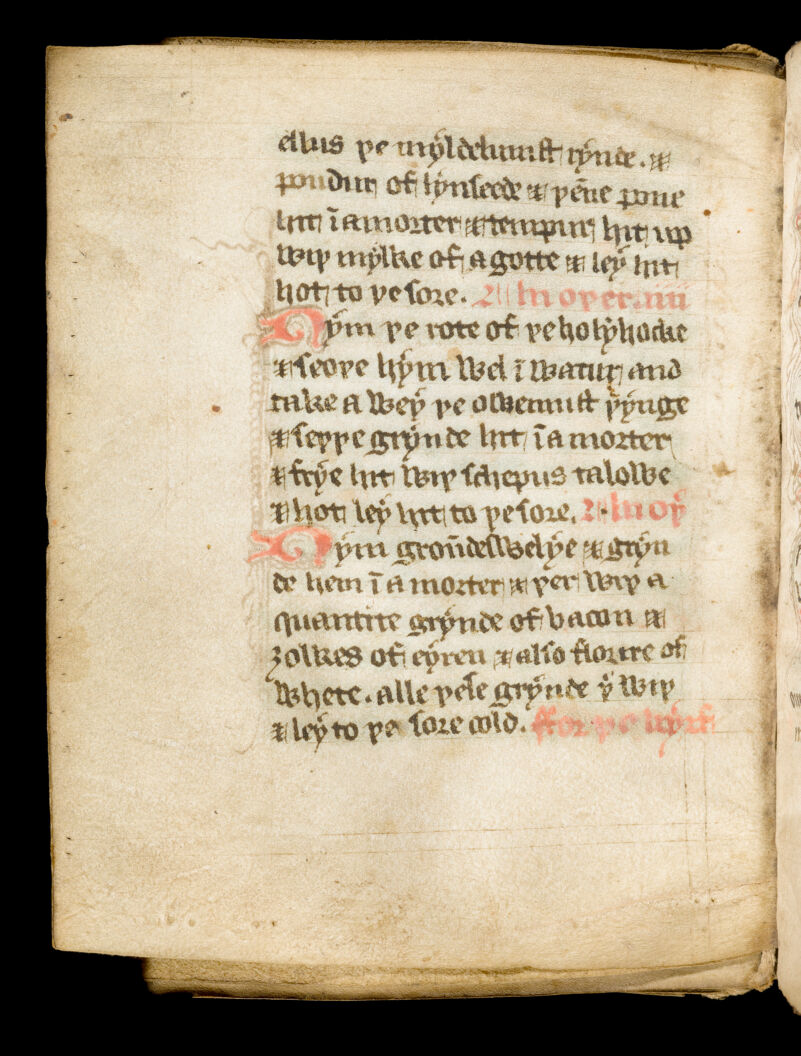 ellus þe myldeluust rynde . &
poudur of lynseede & þēne pone
hit ī a morter & tempur hit up
wiþ mylke of a gotte & ley hit
hot to þe sore. A noþer.iiii
Nym þe rote of þe holyhocke
& seoþe hym wel ī watur and
take a wey þe owemust þynge
& seþþe grynde hit ī a morter
& frye hit wiþ schepus talowe
& hot ley hit to þe sore. A noþ
Nym groūdeswelye & gryn
de hem ī a morter & þer wiþ a
quantite grynde of bacon &
ȝolkes of eyren & also floure of
whete . alle þese grynde þ wiþ
& ley to þe sore cold. ffor þe